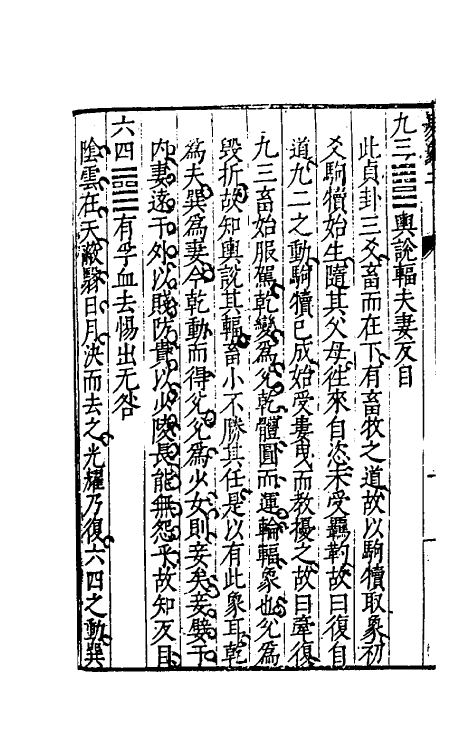 九三䷈䷼輿說輻夫妻反目
此貞卦三爻畜而在下有畜牧之道故以駒犢取象初
爻駒犢始生隨其父母往來自恣未受羈靮故曰復自
道九二之動駒犢已成始受婁曳而教擾之故曰牽復
九三畜始服駕乾變為兊乾體圓而運輪輻象也兊為
毀折故知輿說其輻畜小不勝其任是以有此象耳乾
為夫巽為妻今乾動而得兊兊為少女則妾矣妾嬖于
内妻遠于外以賤防貴以少陵長能無怨乎故知反目
六四䷈䷀有孚血去惕出无咎
陰雲在天蔽翳日月決而去之光耀乃復六四之動巽